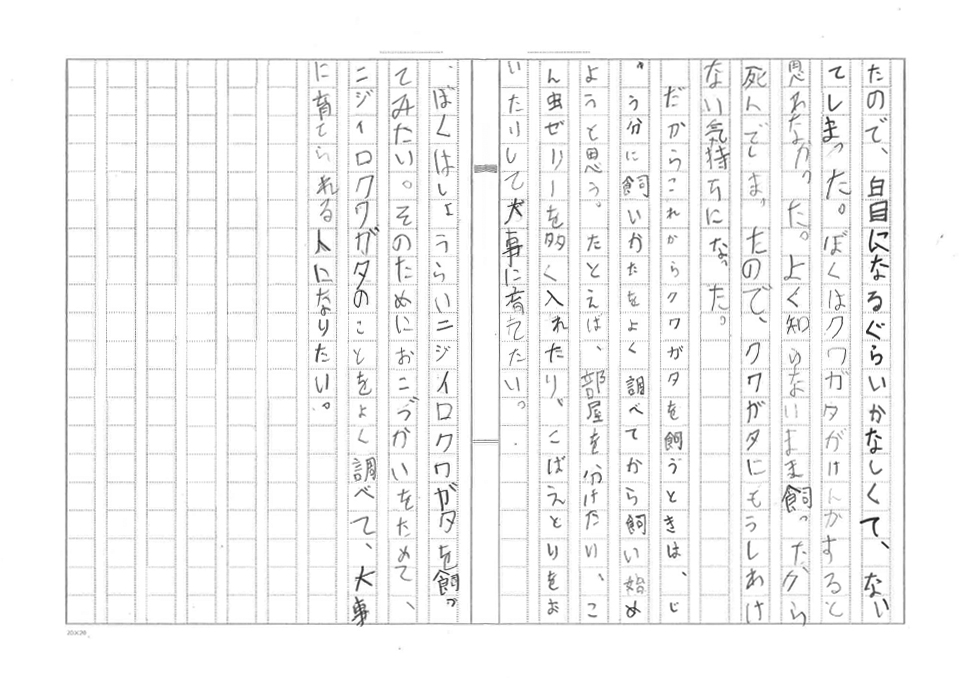 たので、白目になるぐらいかなしくて、ない
てしまった。ぼくはクワガタがけんかすると
思わなかった。よく知らないまま飼ったから
死んでしまったので、クワガタにもうしわけ
ない気持ちになった。
だからこれからクワガタを飼うときは、じ
ゅう分に飼いかたをよく調べてから飼い始め
ようと思う。たとえば、部屋を分けたり、こ
ん虫ゼリーを多く入れたり、こばえとりをお
いたりして大事に育てたい。
ぼくはしょうらいニジイロクワガタを飼っ
てみたい。そのためにおこづかいをためて、
ニジイロクワガタのことをよく調べて、大事
に育てられる人になりたい。
20×20